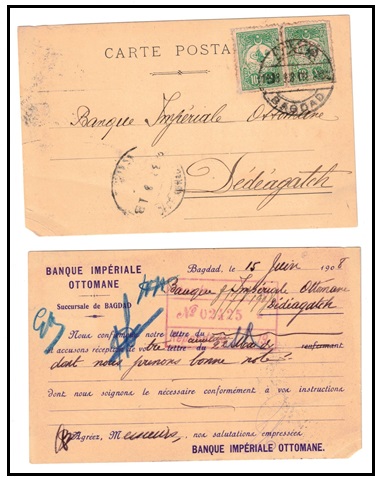 CARTE POSTA
BAGDAD
Banque Impériale Ottomane
Dédéagatch
BANQUE IMPÉRIALE
OTTOMANE
Succursale de BAGDAD
Bagdad, le 15 Juin 1908
Banque Impériale Ottomane
Dédéagatch
Nº 02425
Nous confirmons notre lettre du
et accusons réception de votre lettre du renfermant
dont nous prenons bonne note
dont nous soignons le nécessaire conformément à vos instructions
Agréez, Messieurs, nos salutations empressées
BANQUE IMPÉRIALE OTTOMANE.